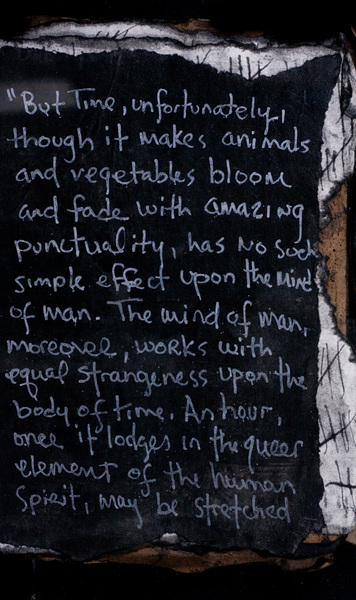 "But Time, unfortunately,
though it makes animals
and vegetables bloom
and fade with amazing
punctuality, has no such
simple effect upon the mind
of man. The mind of man,
moreover, works with
equal strangeness upon the
body of time. An hour,
once it lodges in the queer
element of the human
spirit, may be stretched